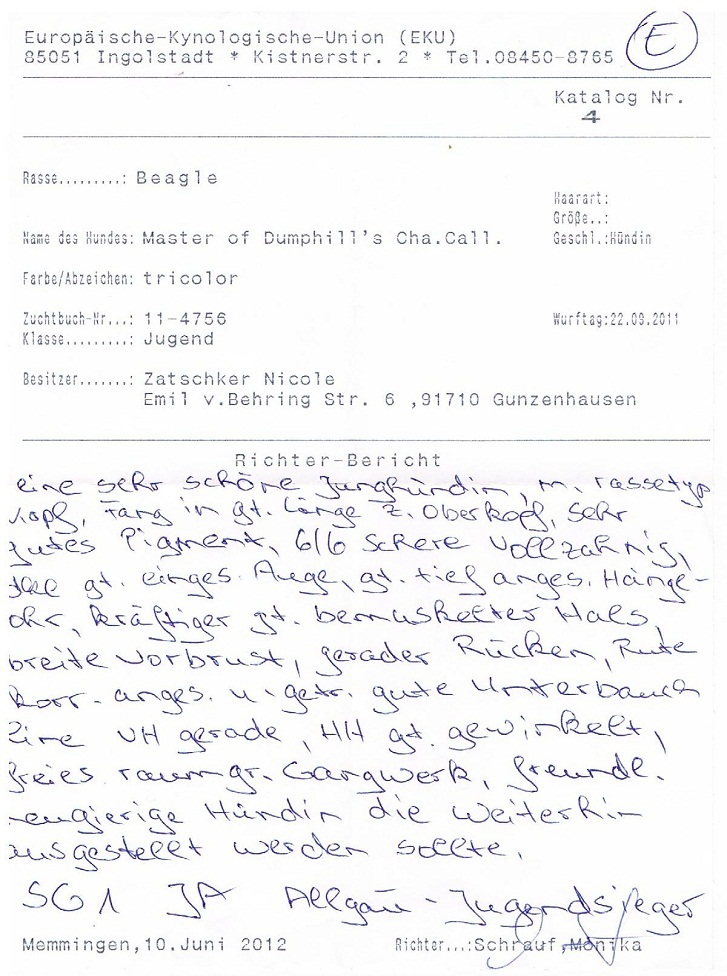 Europäische-Kynologische-Union (EKU)
E
85051 Ingolstadt * Kistnerstr. 2 * Tel.08450-8765
Katalog Nr.
4
Rasse.........: Beagle
Haarart:
Größe..:
Name des Hundes: Master of Dumphill's Cha.Call.
Geschl.:Hündin
Farbe/Abzeichen: tricolor
Zuchtbuch-Nr...: 11-4756
Wurftag:22.09.2011
Klasse.........: Jugend
Besitzer.......: Zatschker Nicole
Emil v.Behring Str. 6 ,91710 Gunzenhausen
Richter-Bericht
eine sehr schöne Junghündin, m. rassetyp
Kopf, Fang in gt. Länge z. Oberkopf, sehr
gutes Pigment, 6/6 Schere vollzahnig,
gt. einges. Auge, gt. tief anges. Hänge-
ohr, kräftiger gt. bemuskelter Hals,
breite Vorbrust, gerader Rücken, Rute
korr. anges. u. getr. gute Unterbauch
line VH gerade, HH gt. gewinkelt,
freies raumgr. Gangwerk, freundl.
neugierige Hündin die weiterhin
ausgestellt werden sollte.
SG1 JA Allgäu-Jugendsieger
Memmingen,10.Juni 2012
Richter...:Schrauf,Monika